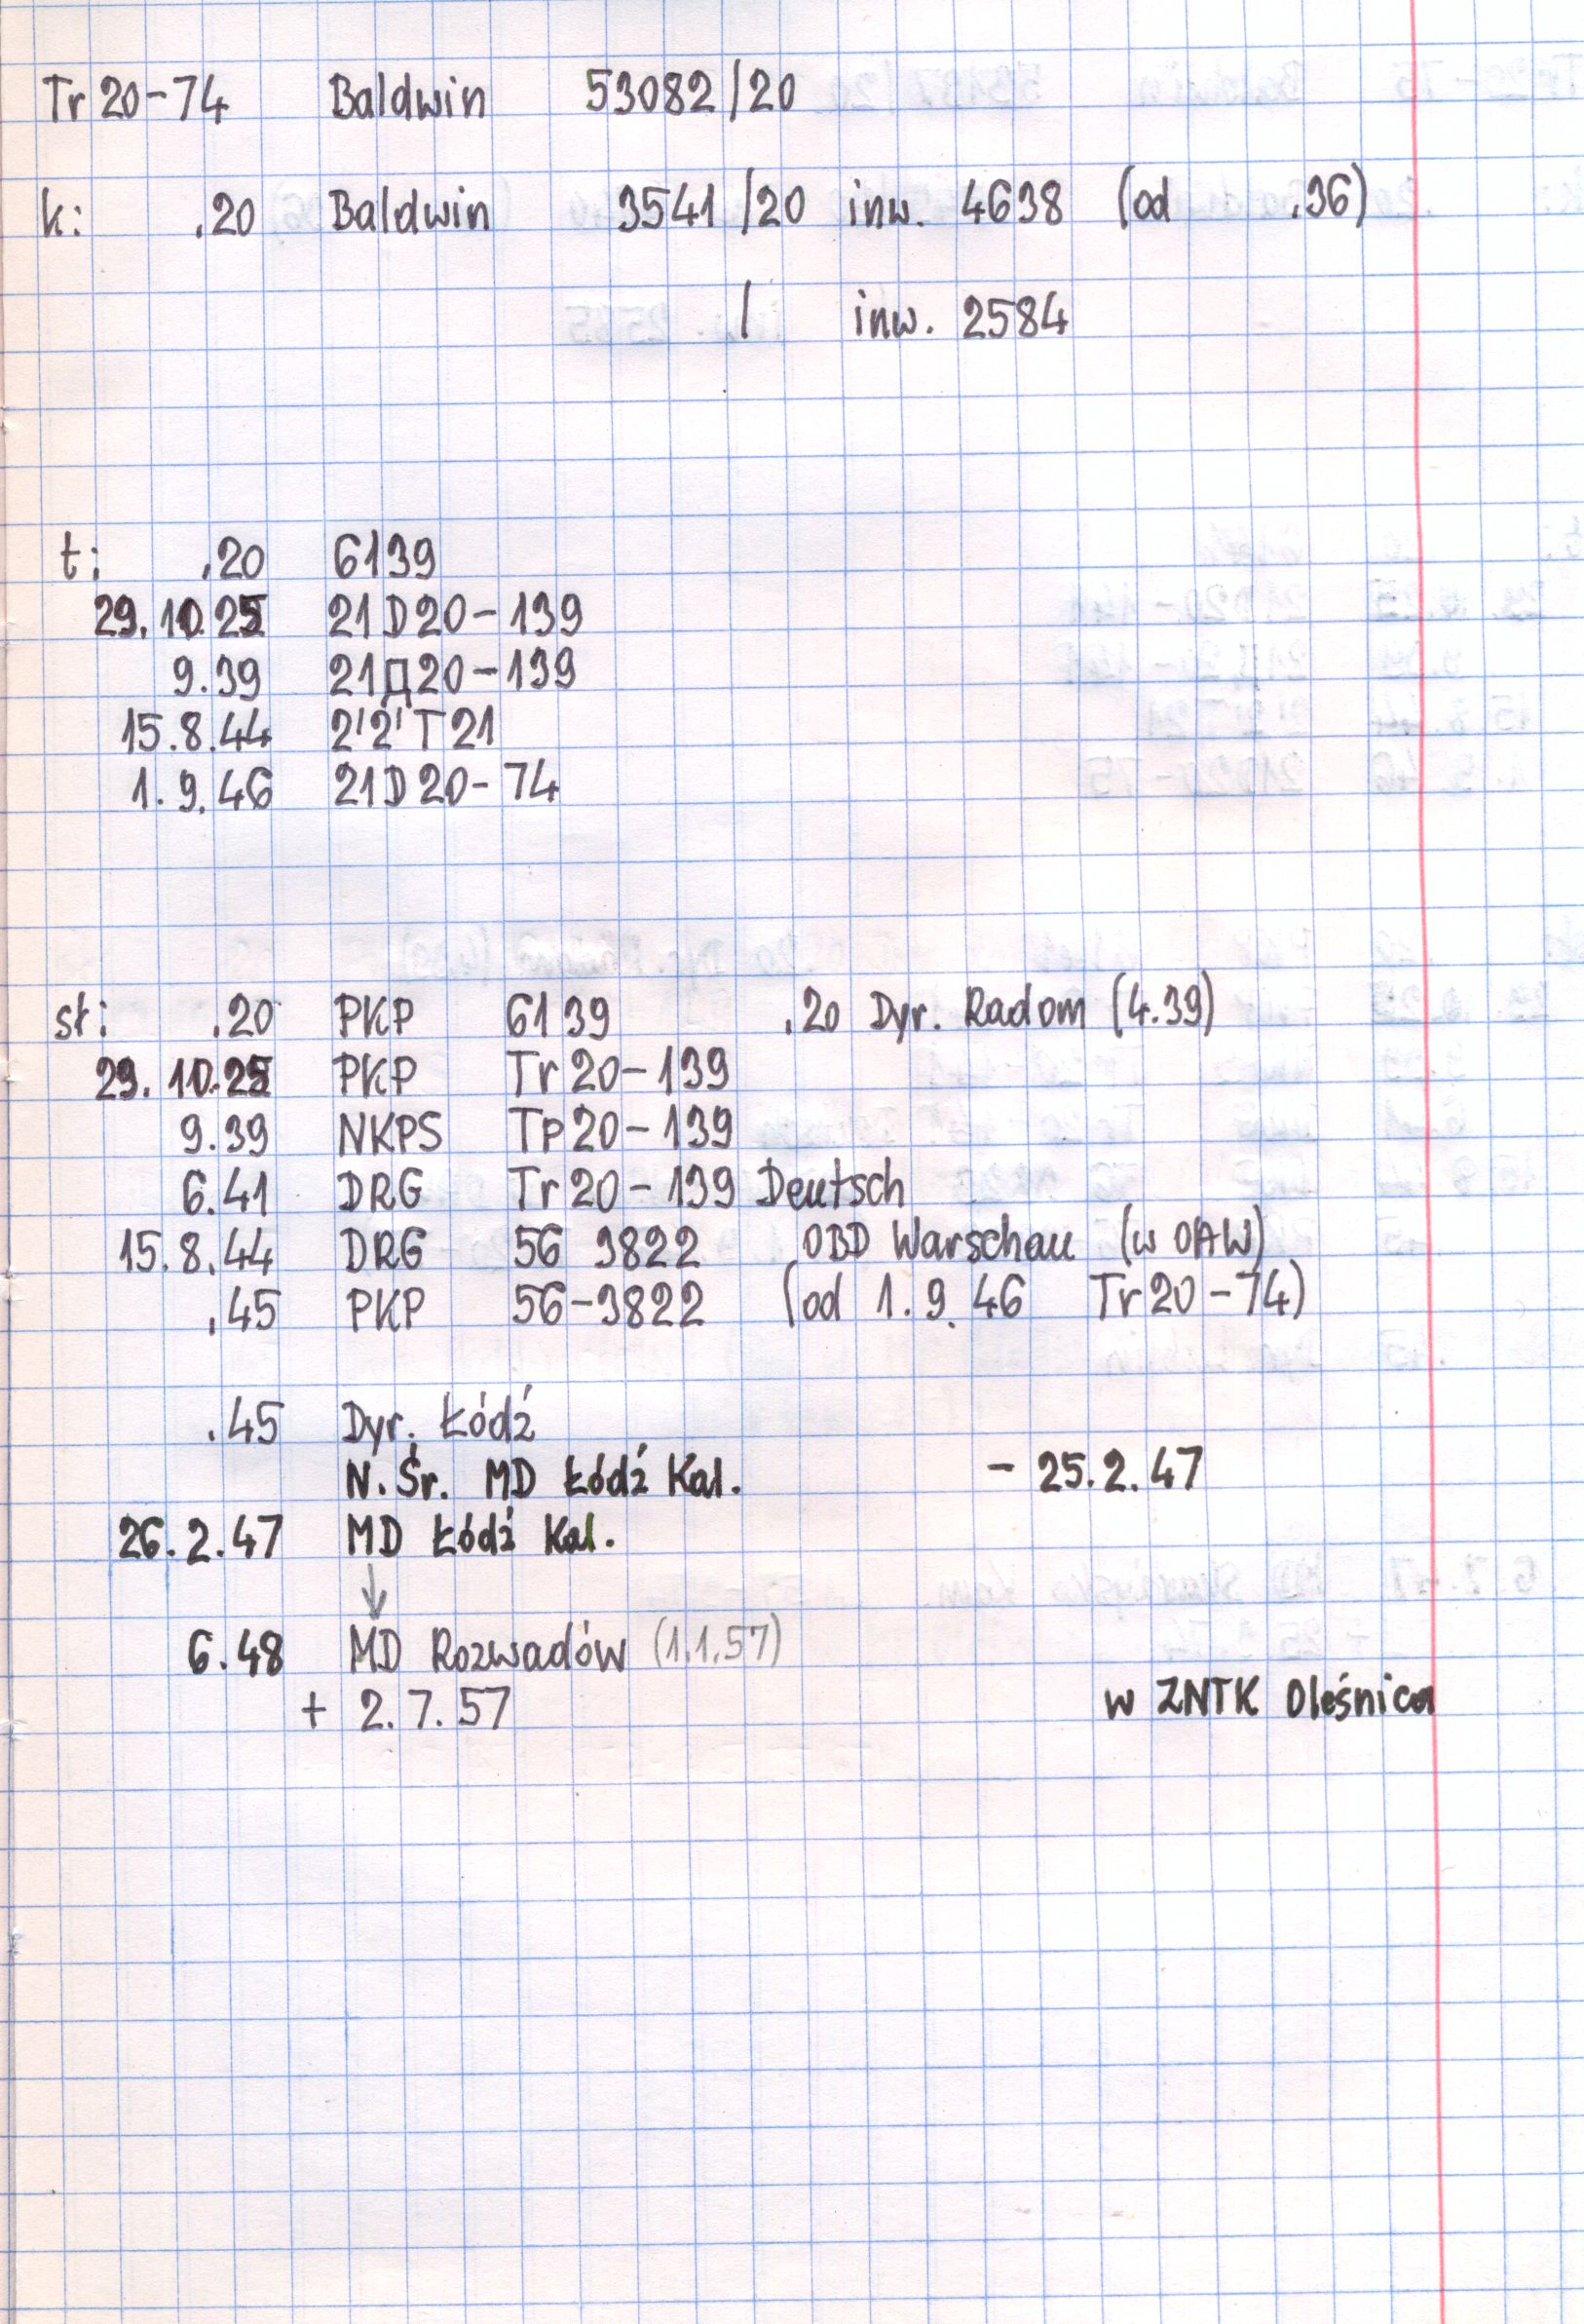 Tr 20-74 Baldwin 53082/20
k: .20 Baldwin 3541/20 inw. 4638 (od .36)
/ inw. 2584
t: .20 6139
29.10.25 21D20-139
9.39 21Д20-139
15.8.44 2'2'T21
1.9.46 21D20-74
st: .20 PKP 6139 .20 Dyr. Radom (4.39)
29.10.25 PKP Tr20-139
9.39 NKPS Tp20-139
6.41 DRG Tr20-139 Deutsch
15.8.44 DRG 56 3822 OBD Warschau (w OAW)
.45 PKP 56-3822 (od 1.9.46 Tr20-74)
.45 Dyr. Łódź
N.Śr. MD Łódź Kal. - 25.2.47
26.2.47 MD Łódź Kal.
↓
6.48 MD Rozwadów (1.1.57)
+ 2.7.57 w ZNTK Oleśnica